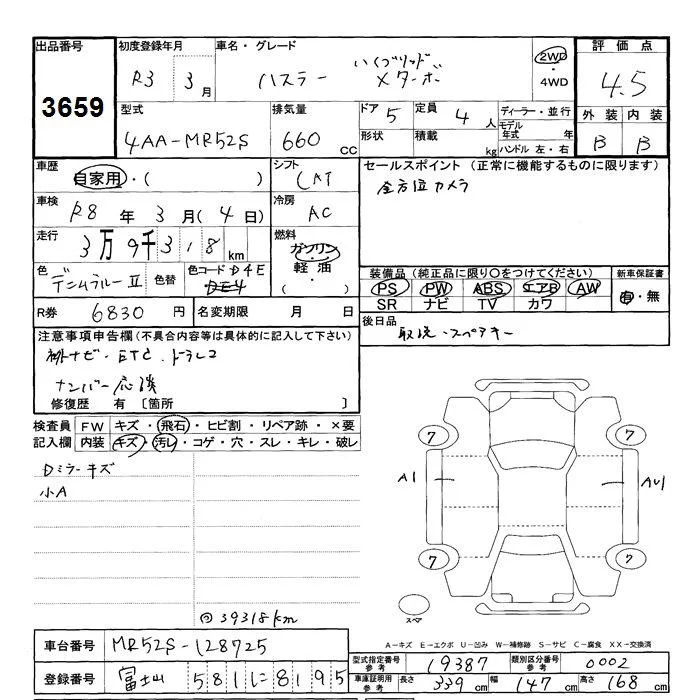 出品番号 初度登録年月 車名・グレード 評価点
3659
R3 3月 ハスラー ハイブリッド Xターボ 2WD・4WD 4.5
型式 排気量 ドア 5 定員 4人 ディーラー・並行 外装 内装
4AA-MR52S 660cc 形状 積載 kg モデル年式 年 ハンドル 左・右 B B
車歴 自家用・( ) シフト CAT セールスポイント(正常に機能するものに限ります)
全方位カメラ
車検 R8年 3月(4日) 冷房 AC
走行 3万9千318km 燃料 ガソリン・軽油・( )
色 デニムブルーⅡ 色替 色コード D4E
装備品(純正品に限り○をつけてください) 新車保証書
PS PW ABS エアB AW 有・無
SR ナビ TV カワ
R券 6830円 名変期限 月 日
後日品 取説・スペアキー
注意事項申告欄(不具合内容等は具体的に記入して下さい)
社外ナビ・ETC・ドラレコ
ナンバー応談
修復歴 有〔箇所 〕
検査員記入欄 FW キズ・飛石・ヒビ割・リペア跡・×要
内装 キズ・汚レ・コゲ・穴・スレ・キレ・破レ
Dミラーキズ
小A
7 7
A1 AU1
7 7
スペア
◎39318km
A-キズ E-エクボ U-凹み W-補修跡 S-サビ C-腐食 XX-交換済
車台番号 MR52S-128725
型式指定番号 参考 19387 類別区分番号 参考 0002
登録番号 富士山 581 に 8195
車庫証明用 参考 長さ 339cm 幅 147cm 高さ 168cm